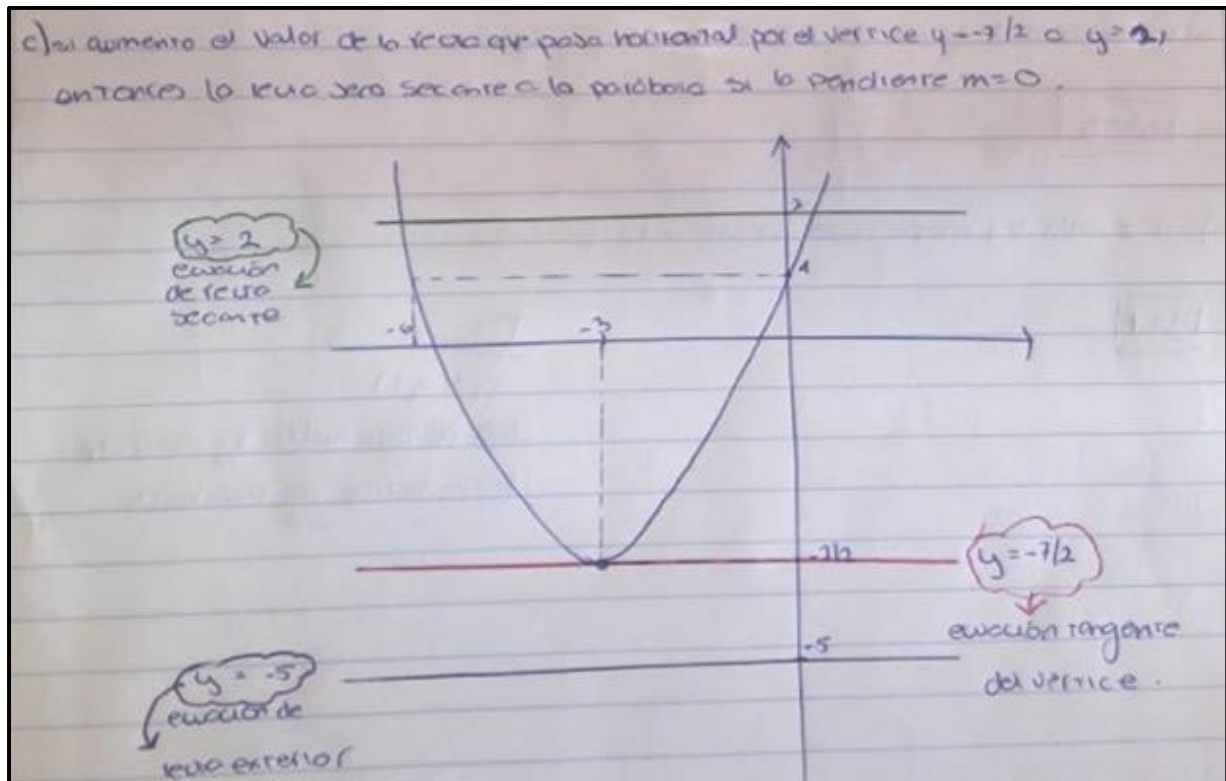 c) si aumento el valor de la recta que pasa horizontal por el vertice y=-7/2 a y=2,
entonces la recta sera secante a la parábola si la pendiente m=0.
2
y= 2
ecuación
de recta
secante
1
-6
-3
-7/2
y=-7/2
ecuación tangente
del vertice.
-5
y = -5
ecuación de
recta exterior